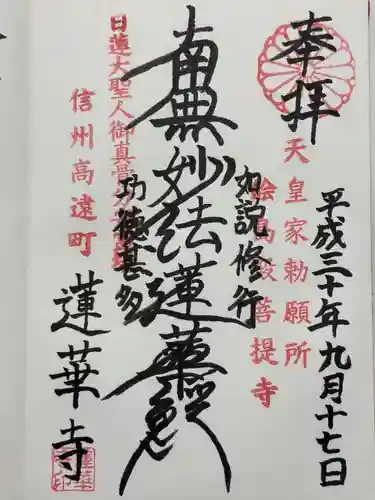 奉拝
天皇家勅願所
絵島殿菩提寺
平成三十年九月十七日
如説修行
南無妙法蓮華経
功徳甚多
日蓮大聖人御真
信州高遠町
蓮華寺